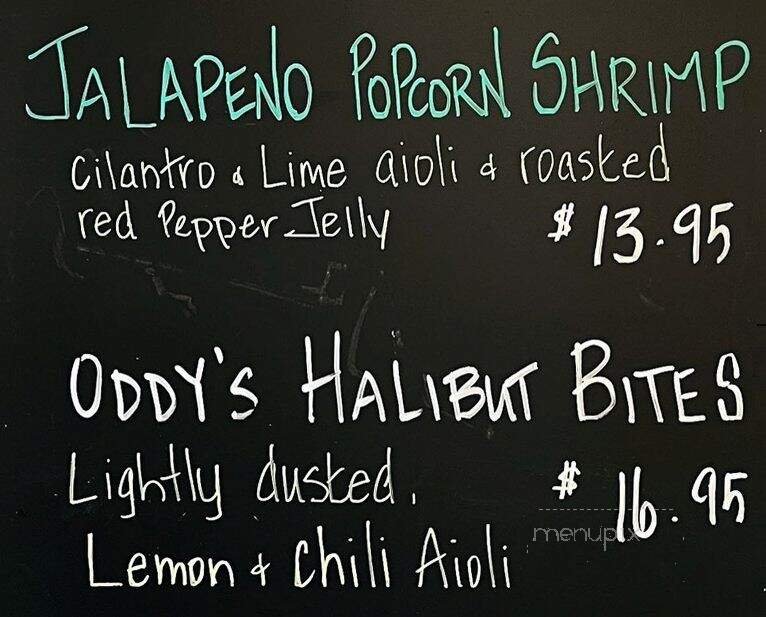 JALAPENO POPCORN SHRIMP
cilantro & Lime aioli & roasted
red Pepper Jelly $ 13.95
ODDY'S HALIBUT BITES
Lightly dusted, $ 16.95
menupix
Lemon & Chili Aioli